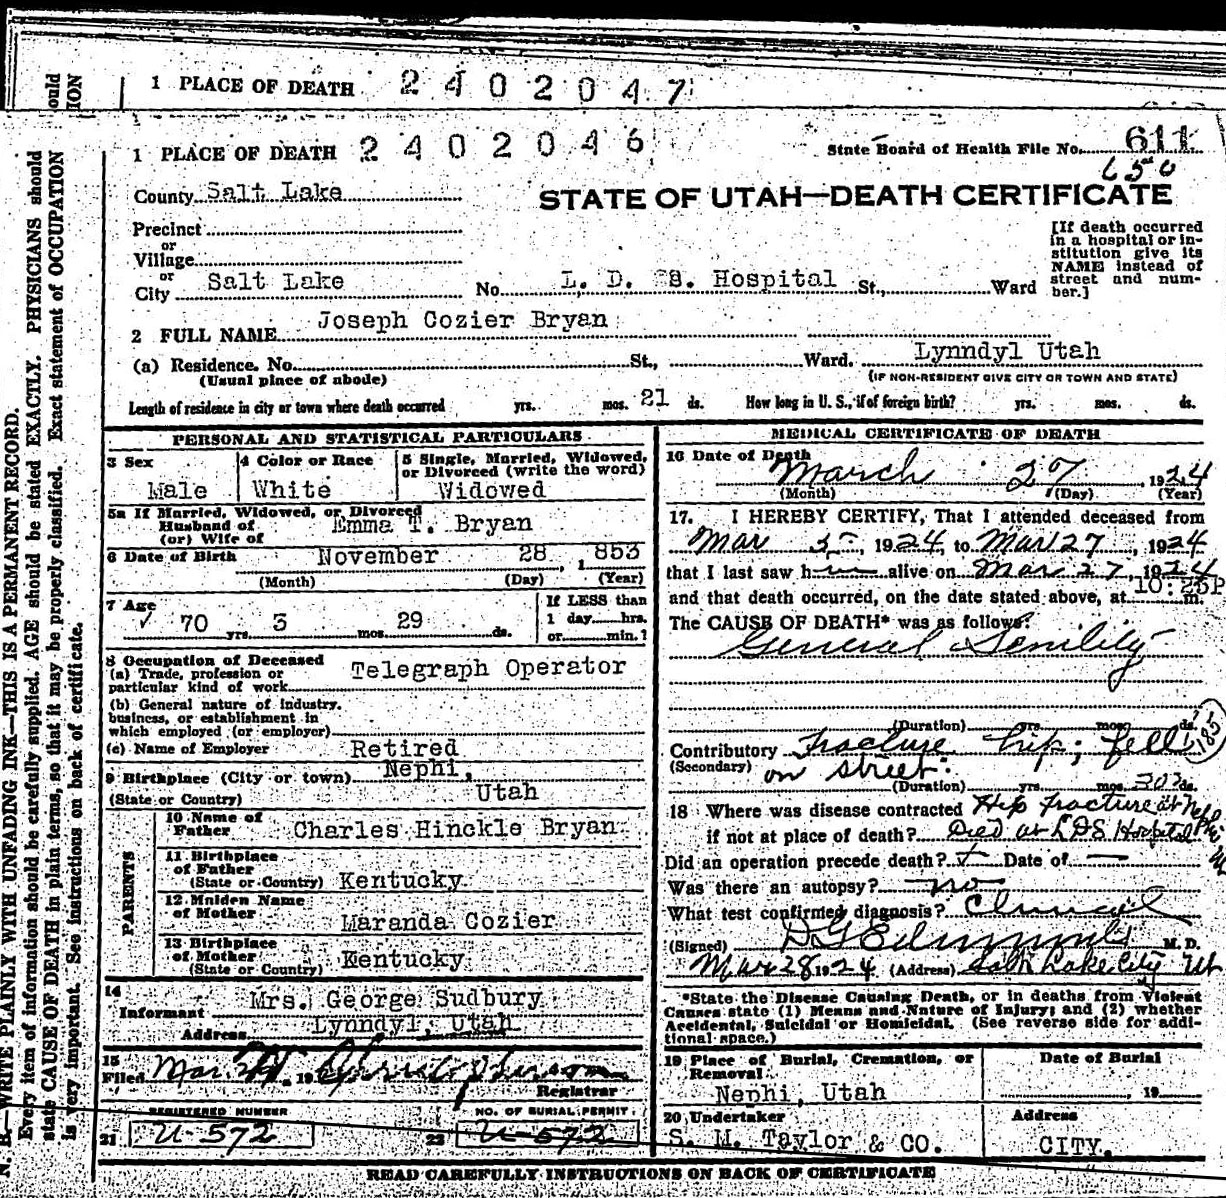 1 PLACE OF DEATH 2402047
1 PLACE OF DEATH 2402046
State Board of Health File No. 611
650
County Salt Lake
STATE OF UTAH—DEATH CERTIFICATE
Precinct
or
Village
or
City Salt Lake No. L. D. S. Hospital St., Ward
[If death occurred
in a hospital or in-
stitution give its
NAME instead of
street and num-
ber.]
2 FULL NAME Joseph Cozier Bryan
(a) Residence. No. St., Ward. Lynndyl Utah
(Usual place of abode)
(IF NON-RESIDENT GIVE CITY OR TOWN AND STATE)
Length of residence in city or town where death occurred yrs. mos. 21 ds. How long in U. S., if of foreign birth? yrs. mos. ds.
PERSONAL AND STATISTICAL PARTICULARS
3 Sex
Male
4 Color or Race
White
5 Single, Married, Widowed,
or Divorced (write the word)
Widowed
5a If Married, Widowed, or Divorced
Husband of Emma T. Bryan
(or) Wife of
6 Date of Birth November 28, 1853
(Month) (Day) (Year)
7 Age
70 yrs. 3 mos. 29 ds.
If LESS than
1 day hrs.
or min.?
8 Occupation of Deceased
(a) Trade, profession or
particular kind of work Telegraph Operator
(b) General nature of industry,
business, or establishment in
which employed (or employer)
(c) Name of Employer Retired
9 Birthplace (City or town) Nephi,
(State or Country) Utah
PARENTS
10 Name of
Father Charles Hinckle Bryan
11 Birthplace
of Father
(State or Country) Kentucky
12 Maiden Name
of Mother Maranda Cozier
13 Birthplace
of Mother
(State or Country) Kentucky
14
Informant Mrs. George Sudbury
Address Lynndyl, Utah
15
Filed Mar. 19
Registrar
REGISTERED NUMBER
21 U-572
NO. OF BURIAL PERMIT
22 U-572
MEDICAL CERTIFICATE OF DEATH
16 Date of Death
March 27, 1924
(Month) (Day) (Year)
17. I HEREBY CERTIFY, That I attended deceased from
Mar 5, 1924, to Mar 27, 1924
that I last saw him alive on Mar 27, 1924
and that death occurred, on the date stated above, at 10:25P m.
The CAUSE OF DEATH* was as follows:
General Senility
(Duration) yrs. mos. ds.
185
Contributory Fracture hip; fell
(Secondary) on street.
(Duration) yrs. mos. 30? ds.
18 Where was disease contracted Hip fracture at Nephi
if not at place of death? Died at LDS Hospital
Did an operation precede death? Date of —
Was there an autopsy? no
What test confirmed diagnosis? Clinical
(Signed) D G Edmunds M. D.
Mar 28 1924 (Address) Salt Lake City Ut
*State the Disease Causing Death, or in deaths from Violent
Causes state (1) Means and Nature of Injury; and (2) whether
Accidental, Suicidal or Homicidal. (See reverse side for addi-
tional space.)
19 Place of Burial, Cremation, or
Removal
Nephi, Utah
Date of Burial
, 19
20 Undertaker
S. M. Taylor & CO.
Address
CITY.
READ CAREFULLY INSTRUCTIONS ON BACK OF CERTIFICATE
N. B.—WRITE PLAINLY WITH UNFADING INK—THIS IS A PERMANENT RECORD.
Every item of information should be carefully supplied. AGE should be stated EXACTLY. PHYSICIANS should
state CAUSE OF DEATH in plain terms, so that it may be properly classified. Exact statement of OCCUPATION
is very important. See instructions on back of certificate.
ould
ION